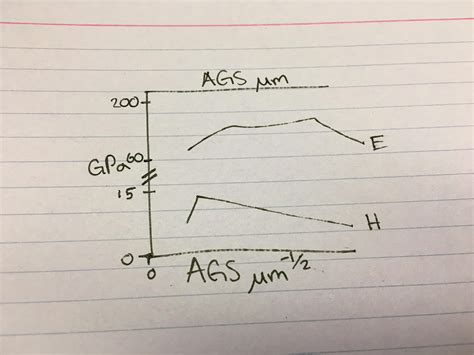 AGS μm
200
E
GPa 60
15
H
0
0
AGS μm-1/2